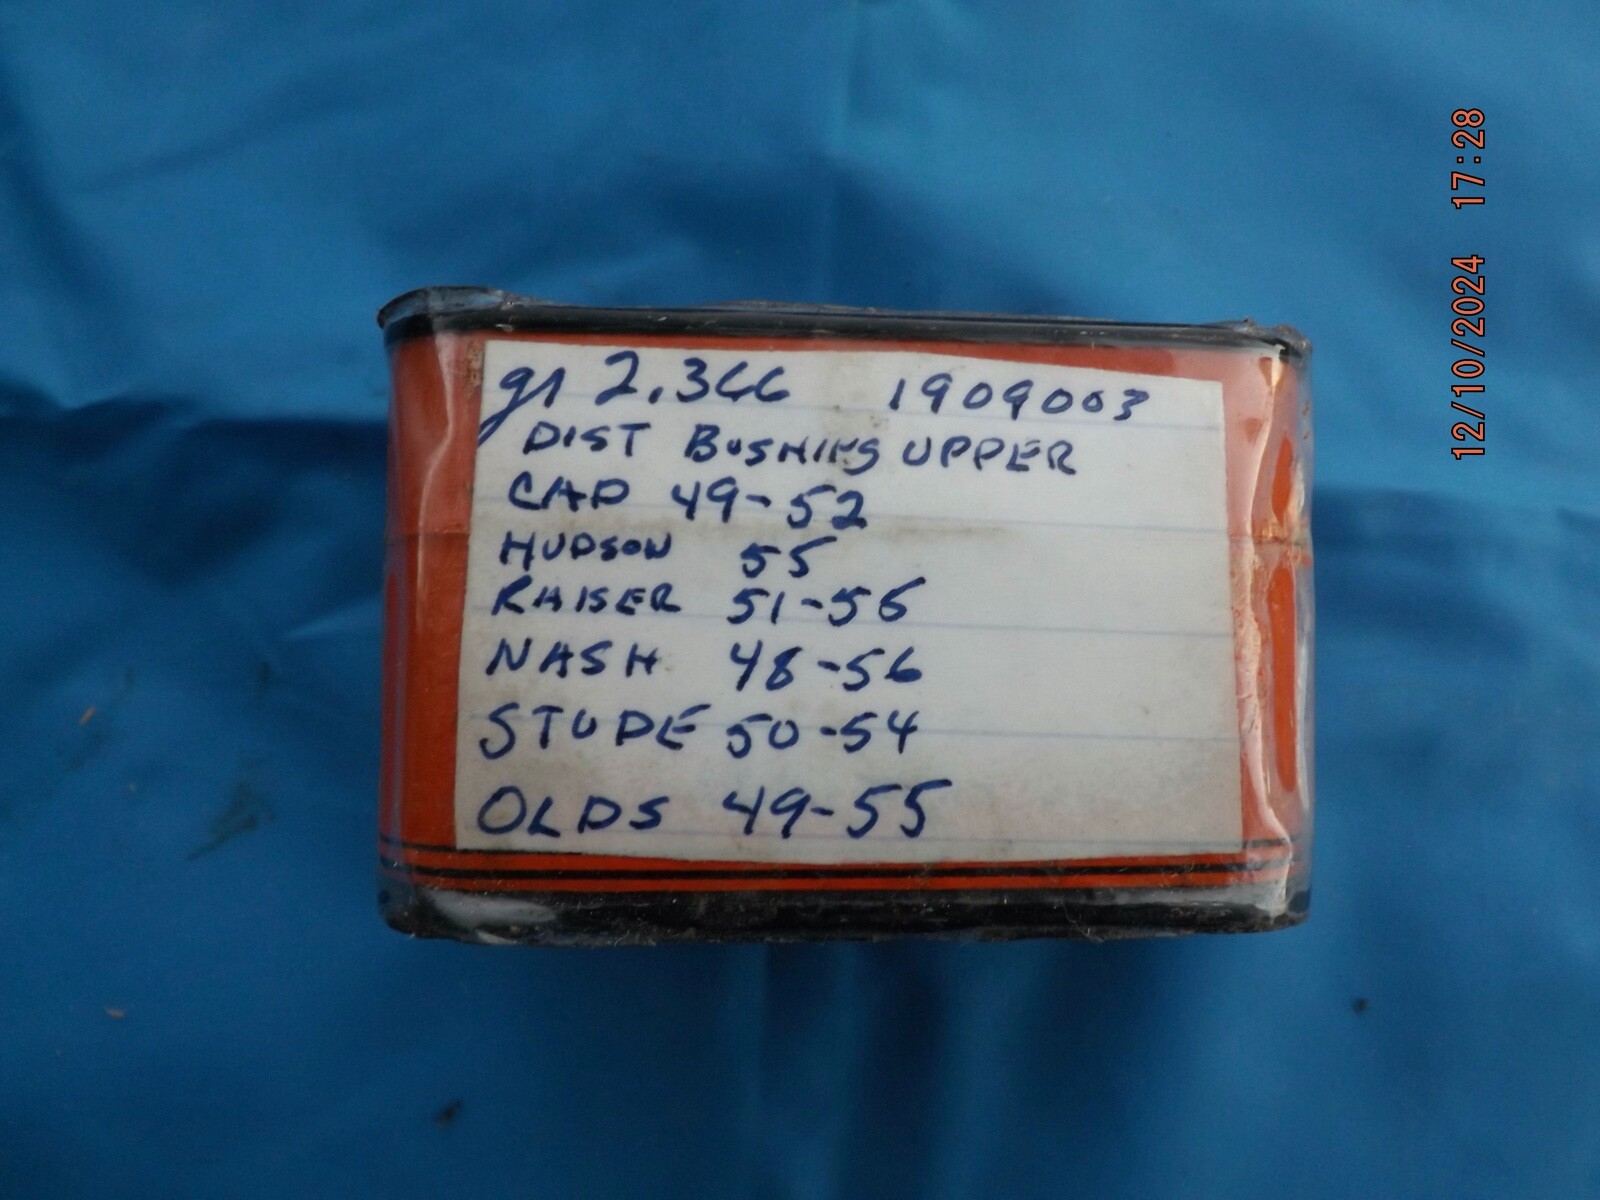 gr 2.366 1909003
DIST BUSHING UPPER
CAD 49-52
HUDSON 55
KAISER 51-55
NASH 48-56
STUDE 50-54
OLDS 49-55
12/10/2024 17:28